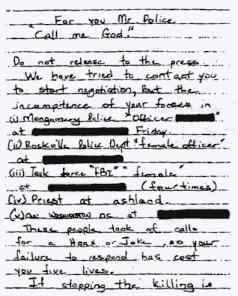 "For you Mr. Police
"Call me God."
Do not release to the press.
We have tried to contact you
to start negotiation, But the
incompitence of your forces in
(i) Montgomery Police "Officer
at Friday.
(ii) Rockville Police Dept. "female officer"
at
(iii) Task force "FBI" "female"
at (four times)
(iv) Priest at ashland.
(v) at
These people took of calls
for a Hoax or Joke, so your
failure to respond has cost
you five lives.
If stopping the killing is